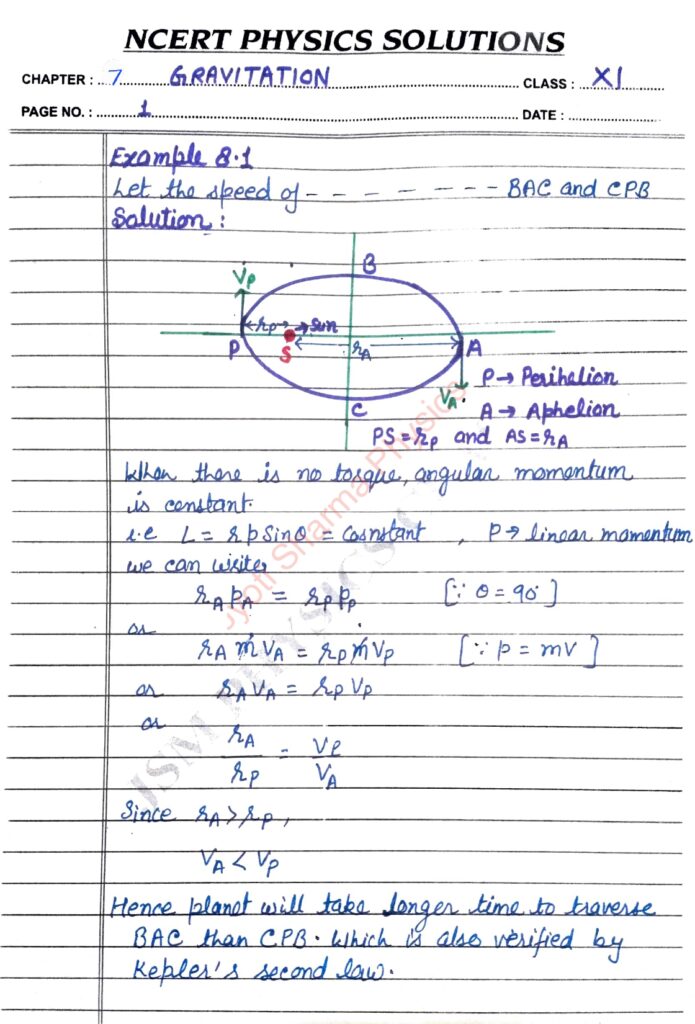 NCERT PHYSICS SOLUTIONS
CHAPTER : 7 GRAVITATION CLASS : XI
PAGE NO. : 1 DATE :
Example 8.1
Let the speed of - - - - - - - - BAC and CPB
Solution :
B
Vp
rp → Sun
P S rA A
VA
C
P → Perihelion
A → Aphelion
PS = rp and AS = rA
When there is no torque, angular momentum
is constant.
i.e L = rpSinθ = Cosnstant , P → linear momentum
we can write
rA pA = rp pp [∵ θ = 90°]
or
rA m VA = rp m Vp [∵ p = mv]
or rA VA = rp Vp
or
rA / rp = Vp / VA
Since rA > rp,
VA < Vp
Hence planet will take longer time to traverse
BAC than CPB. Which is also verified by
Kepler's second law.
Jyoti Sharma Physics
JSM PHYSICS